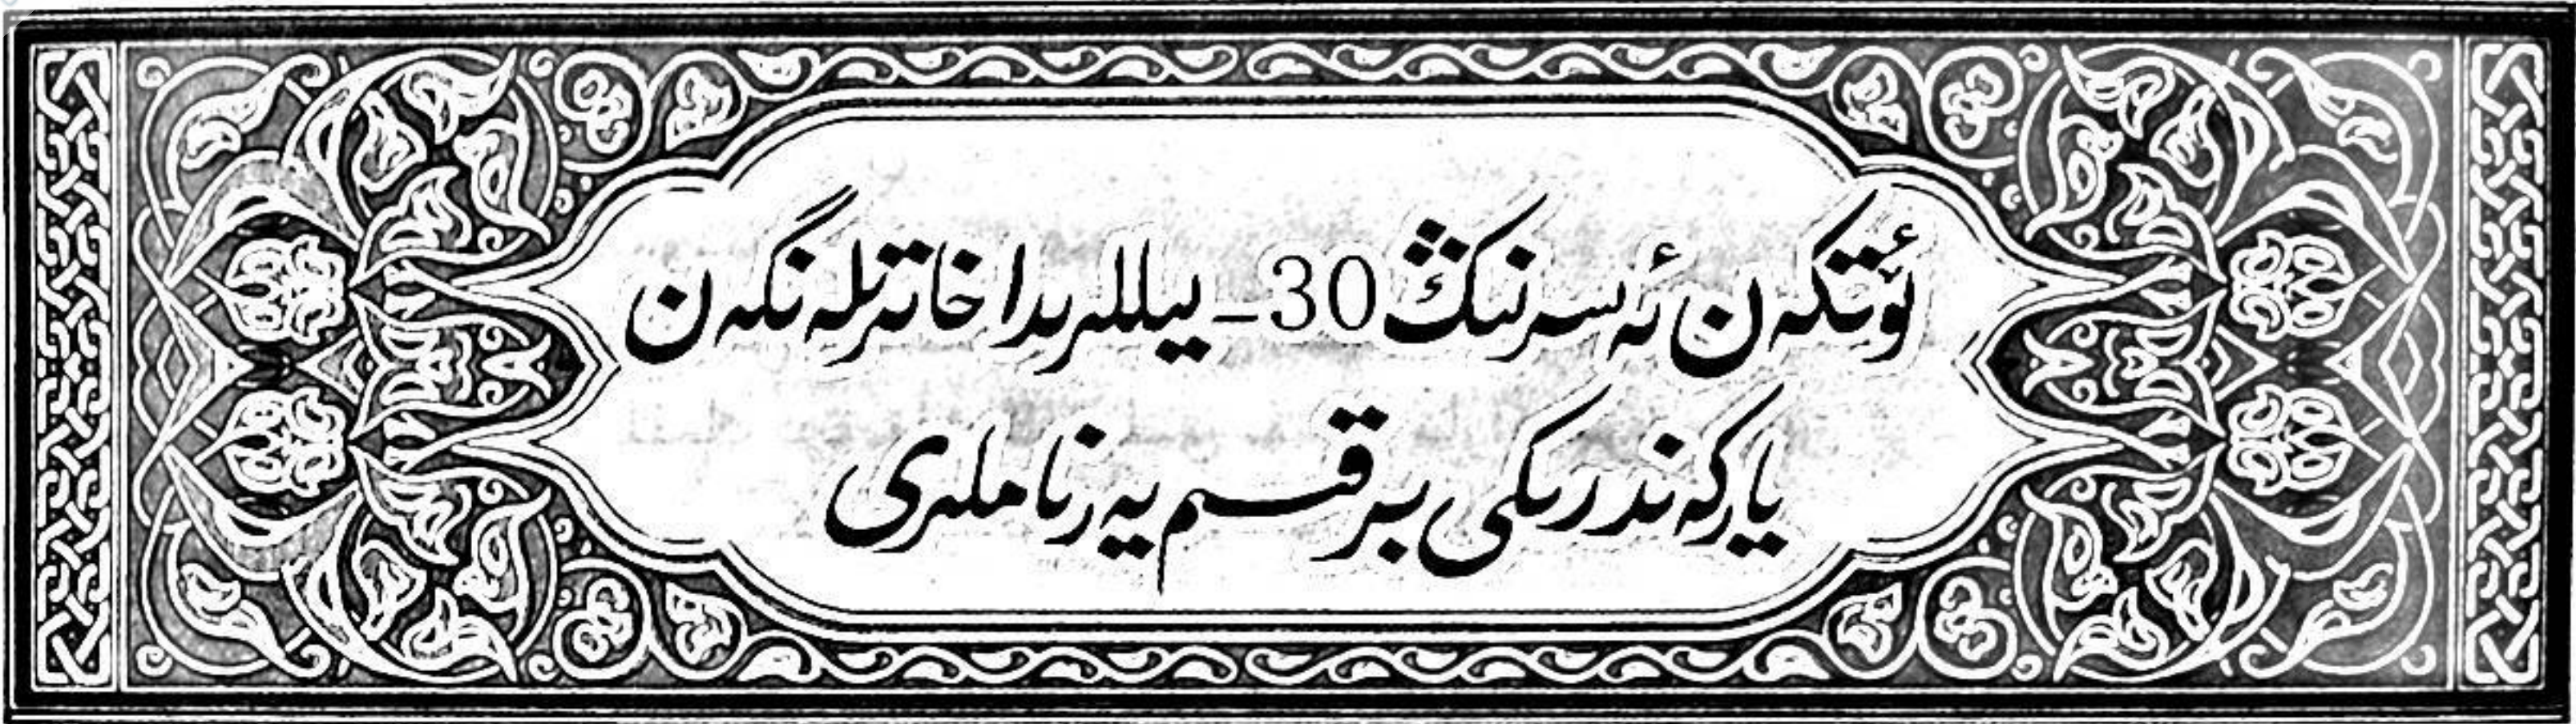 ئۆتكەن ئەسىرنىڭ 30-يىللىرىدا خاتىرىلەنگەن
ياركەندىرىكى بىر قىسىم يەرناملىرى